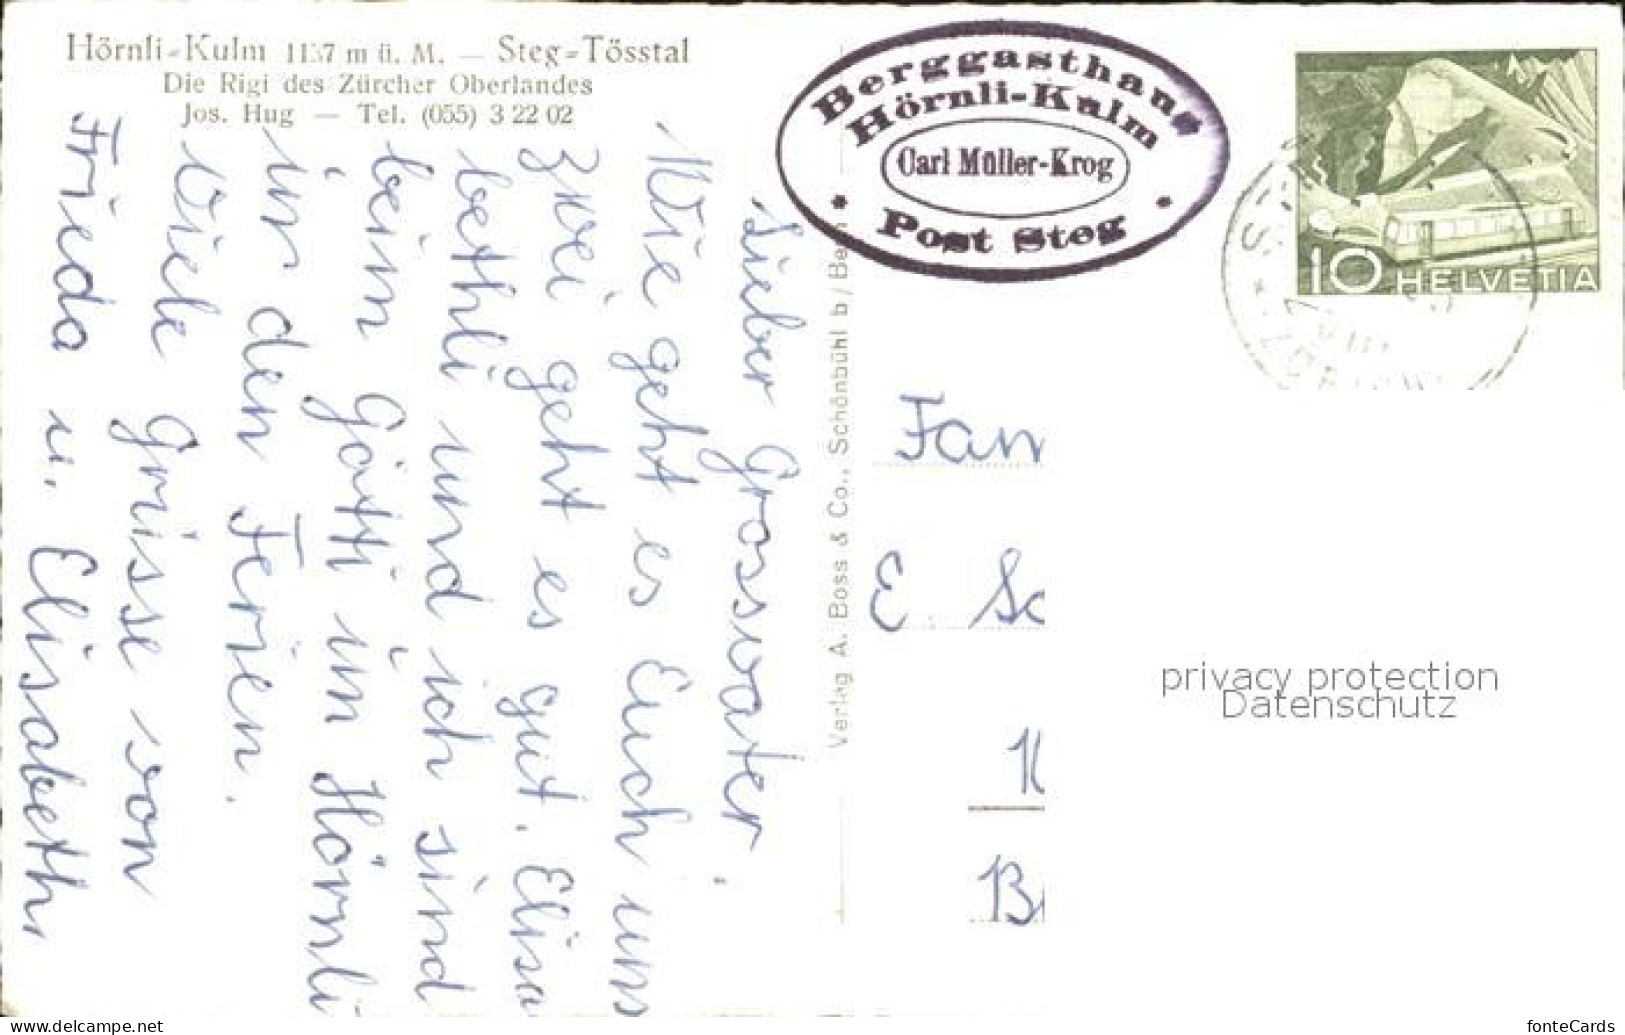 Hörnli-Kulm 1137 m ü. M. — Steg-Tösstal
Die Rigi des Zürcher Oberlandes
Jos. Hug — Tel. (055) 3 22 02
Lieber Grossvater.
Wie geht es Euch uns
zwei geht es gut. Elisa
bethli und ich sind
beim Götti im Hörnli
in den Ferien.
Viele Grüsse von
Frieda u. Elisabeth.
Verlag A. Boss & Co., Schönbühl b/Bern
Berggasthaus
Hörnli-Kulm
Carl Müller-Krog
Post Steg
10 HELVETIA
Fam
E Sc
K
B
privacy protection
Datenschutz
www.delcampe.net
fonteCards